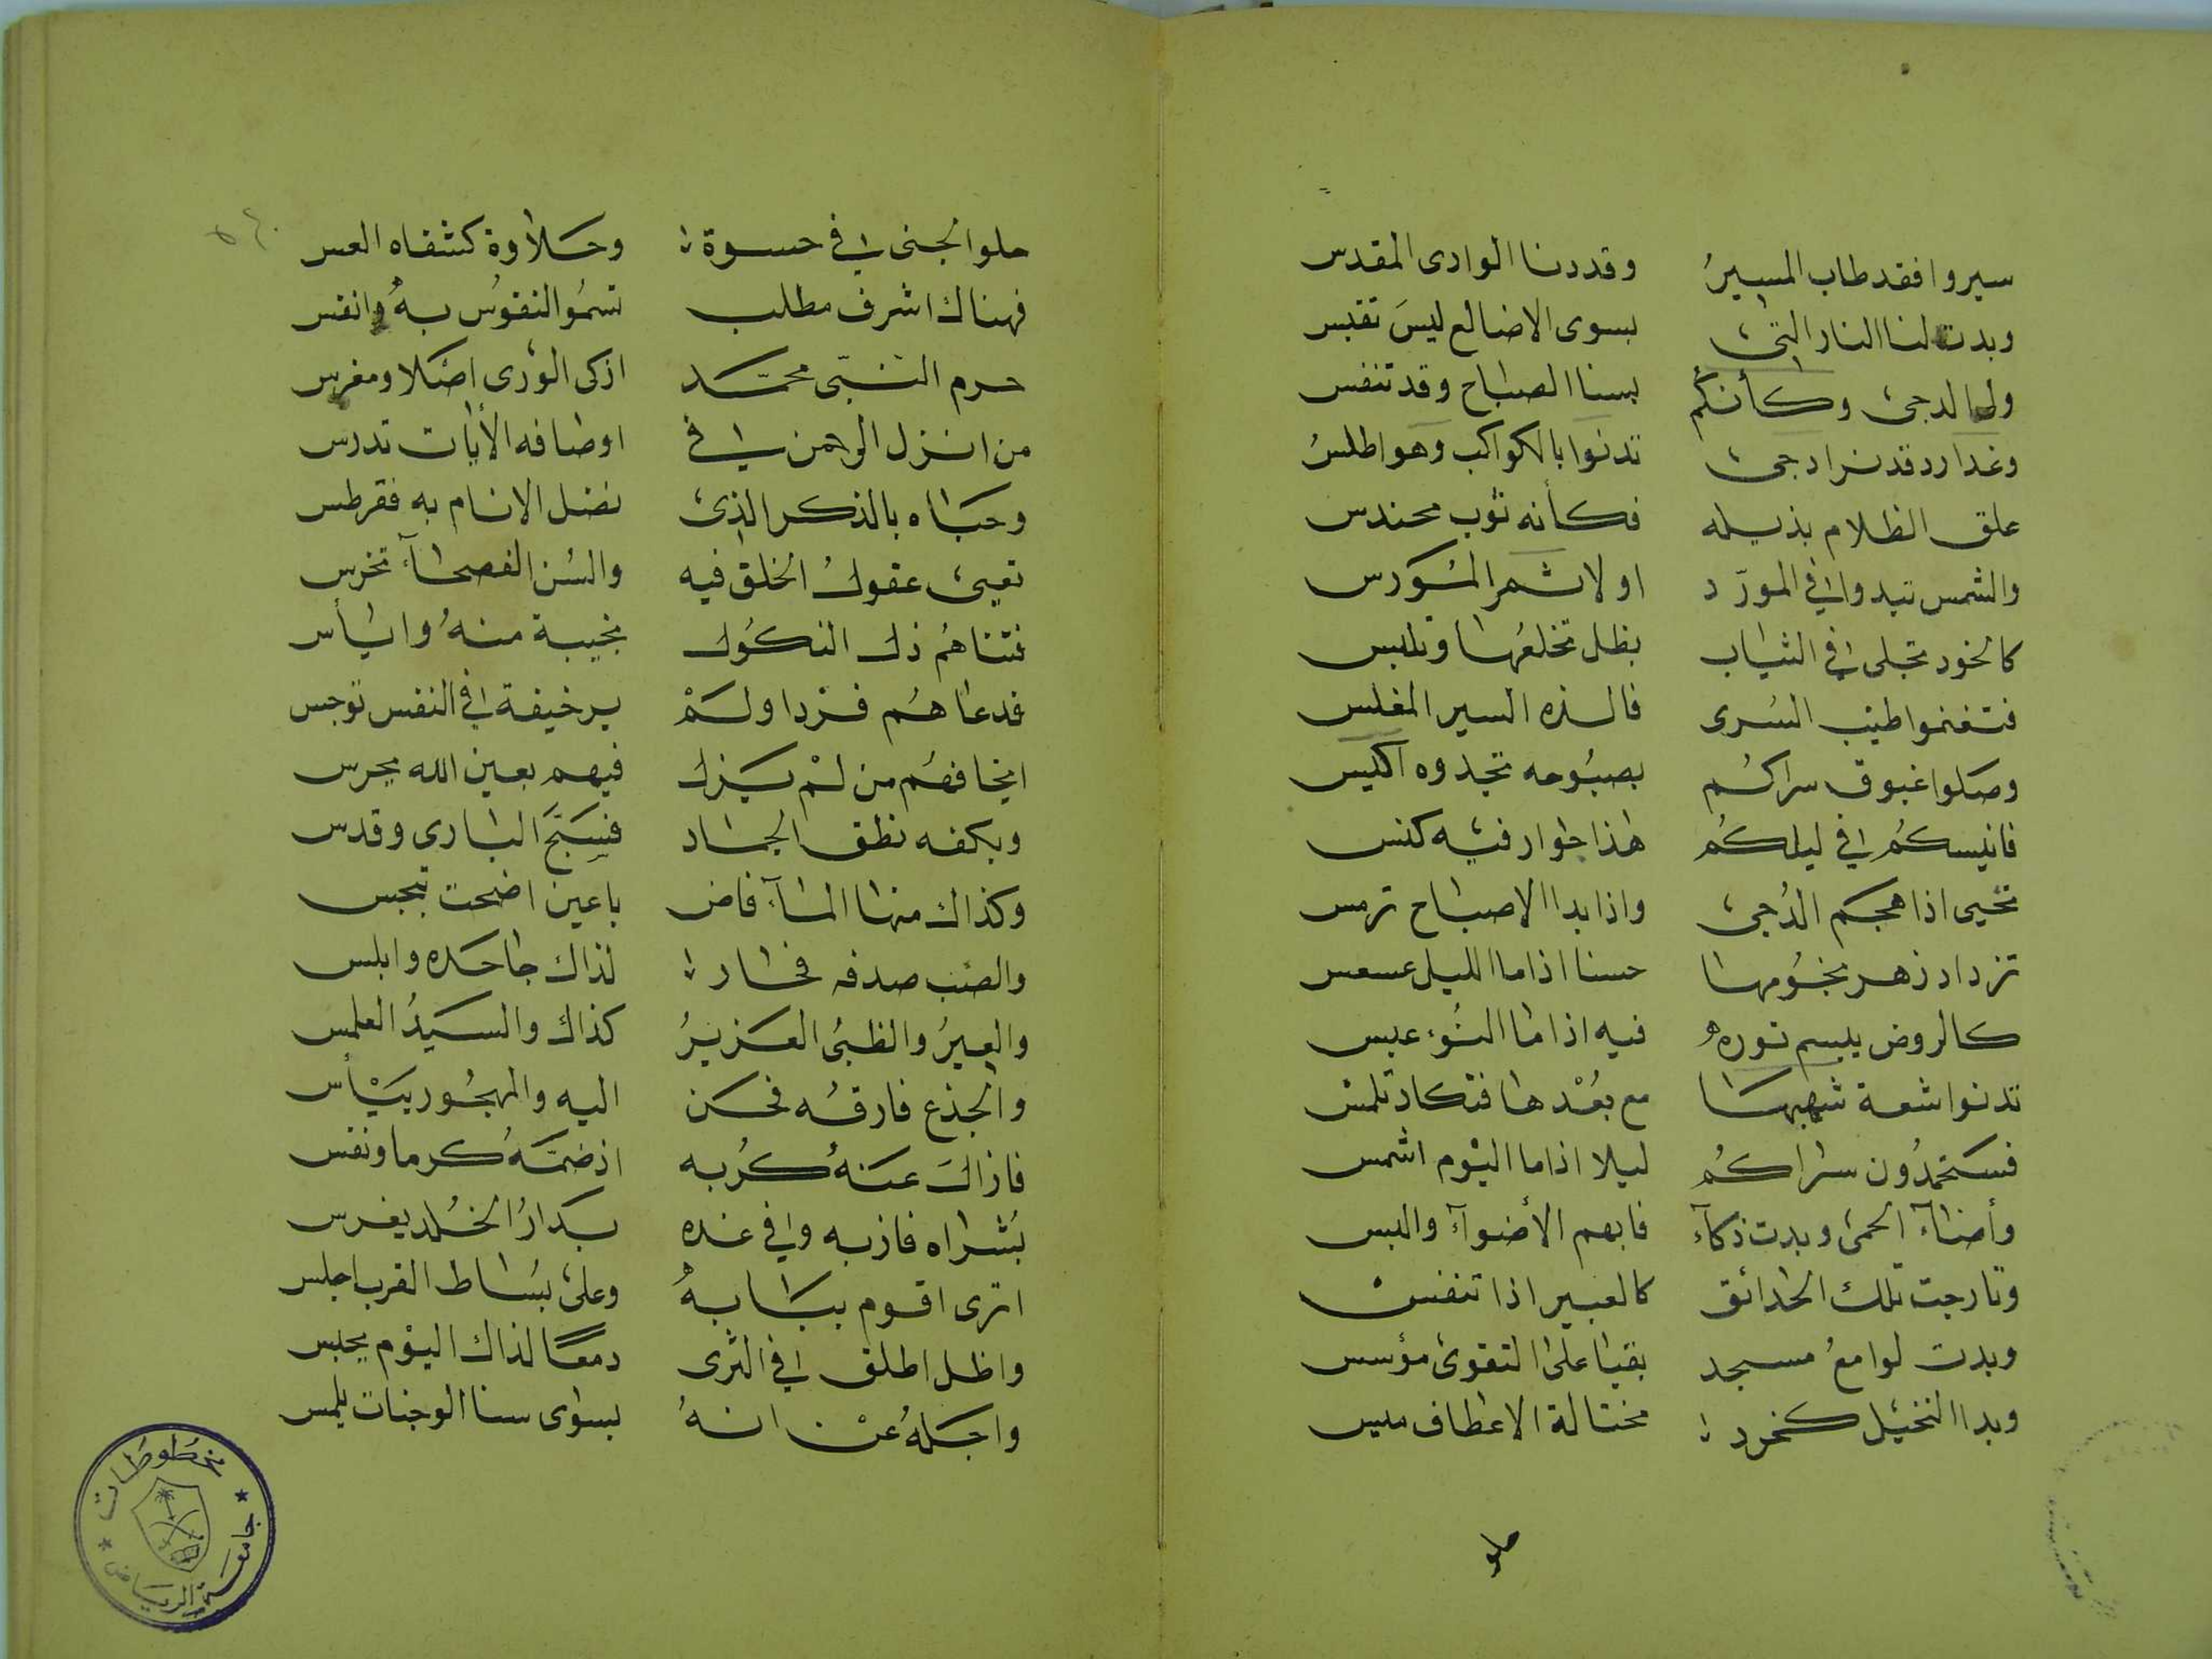 سيروا فقد طاب المسيرُ وقد دنا الوادى المقدس
وبدت لنا النار التى بسوى الاضالع ليسَ تقبس
ولى الدجى وكأنكم بسنا الصباح وقد تنفس
وغدا رد قد نرا دجى تدنوا بالكواكب وهو اطلسُ
علق الظلام بذيله فكأنه ثوب محندس
والشمس تبدوا فى المورّد او لا شمر المورس
كالخود تجلى فى الثياب بظل تخلعها وتلبس
فتغنموا طيب السُرى فالذه السير المغلس
وصَلوا غبوق سراكُم بصبُوحه تجدوه اكيس
فانيسكُم فى ليلكُم هذا جوار فيه كنس
تحيى اذا هجم الدُجى واذا بدا الاصباح ترمس
تزداد زهر نجُومها حسنا اذا ما الليل عسعس
كالروض يبسم نوره فيه اذا ما النُوء عبس
تدنوا شعة شهبها مع بُعْدها فتكاد تلمس
فسَتحمدُون سراكُم ليلا اذا ما اليْوم اشمس
وأضاء الحمى وبدت ذكآء فابهم الأضوآء والبس
وتارجت تلك الحدائق كالعبير اذا تنفس
وبدت لوامعُ مسجد بقبا على التقوى مؤسس
وبدا النخيل كخرد مختالة الاعطاف ميس
حلو
حلو الجنى فى حسوة وحلاوة كشفاه العس
فهناك اشرف مطلب تسمُو النفوُس به وانفس
حرم النبّى محمّد ازكى الوُرى اصَلا ومغرس
من انزل الرحمن فى اوصافه الأيات تدرس
وحبَاه بالذكر الذى نضل الانام به فقرطس
تعيى عقولُ الخلق فيه والسُن الفصحآء تخرس
فتناهُم ذل النكُول بخيبة منهُ واياس
فدعاهُم فرْدا ولمْ ير خيفة فى النفس توجس
ايخافهُم من لمْ يَزل فيهم بعين الله يحرس
وبكفه نطق الجماد فسَبّحَ البارى وقدس
وكذاك منها المآء فاض باعين اضحت تبجس
والضب صدفه فحار لذاك جاحده وابلس
والعيرُ والظبىُ العَزيزُ كذاك والسَيدُ العلمس
والجذع فارقُه فحَن اليه والمهجُور ييْأس
فازال عَنهُ كُربه اذ ضمَّهُ كرما ونفس
بُشراه فاز به وفى غده بدَارُ الخُلد يغرس
اترى اقوم ببَابهُ وعلى بسَاط القرب اجلس
واظل اطلق فى الثرى دمعًا لذاك اليْوم يحبس
واجلهُ عنْ انهُ بسوى سنا الوجنات يلمس
مخطوطات
جامعة الرياض